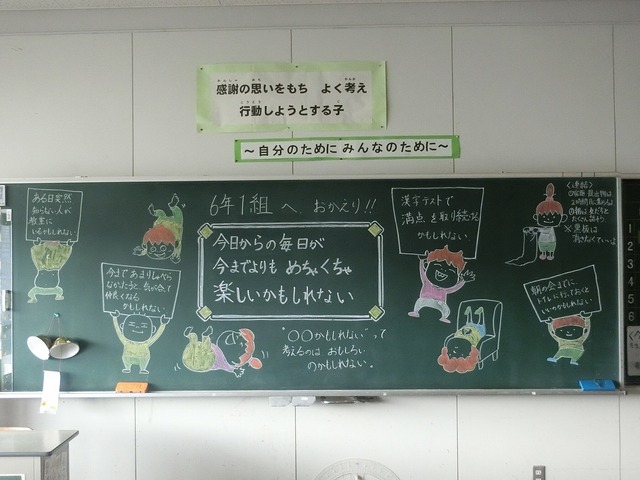 感謝の思いをもち よく考え
行動しようとする子
～自分のために みんなのために～
6年1組へ おかえり!!
今日からの毎日が
今までよりも めちゃくちゃ
楽しいかもしれない
"○○かもしれない"って
考えるのは おもしろい
のかもしれない。
ある日突然
知らない人が
教室に
いるかもしれない
今まであまりしゃべら
なかった子と 気が合って
仲良くなる
かもしれない
漢字テストで
満点を取り続ける
かもしれない
朝の会までに
トイレに行っておくと
いいのかもしれない
<連絡>
2時間目に集める
たくさん話そう
※黒板は
1
2
3
4
5
6